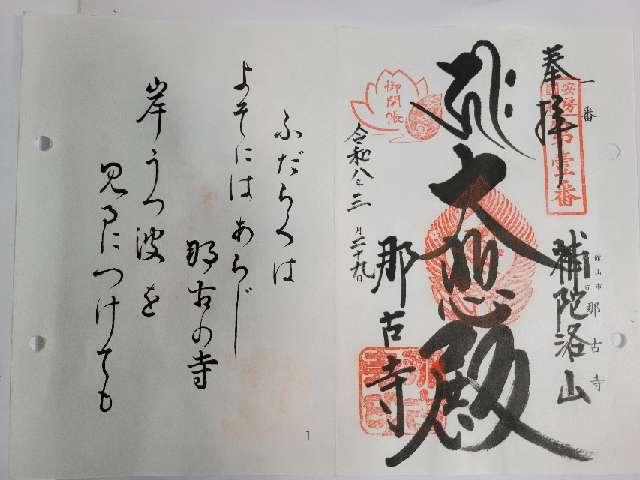 一番
奉拝
安房
第壹番
補陀洛山
館山市
那古寺
大悲殿
御開帳
令和八年三月二十九日
那古寺
ふだらくは
よそにはあらじ
那古の寺
岸うつ波を
見るにつけても
1